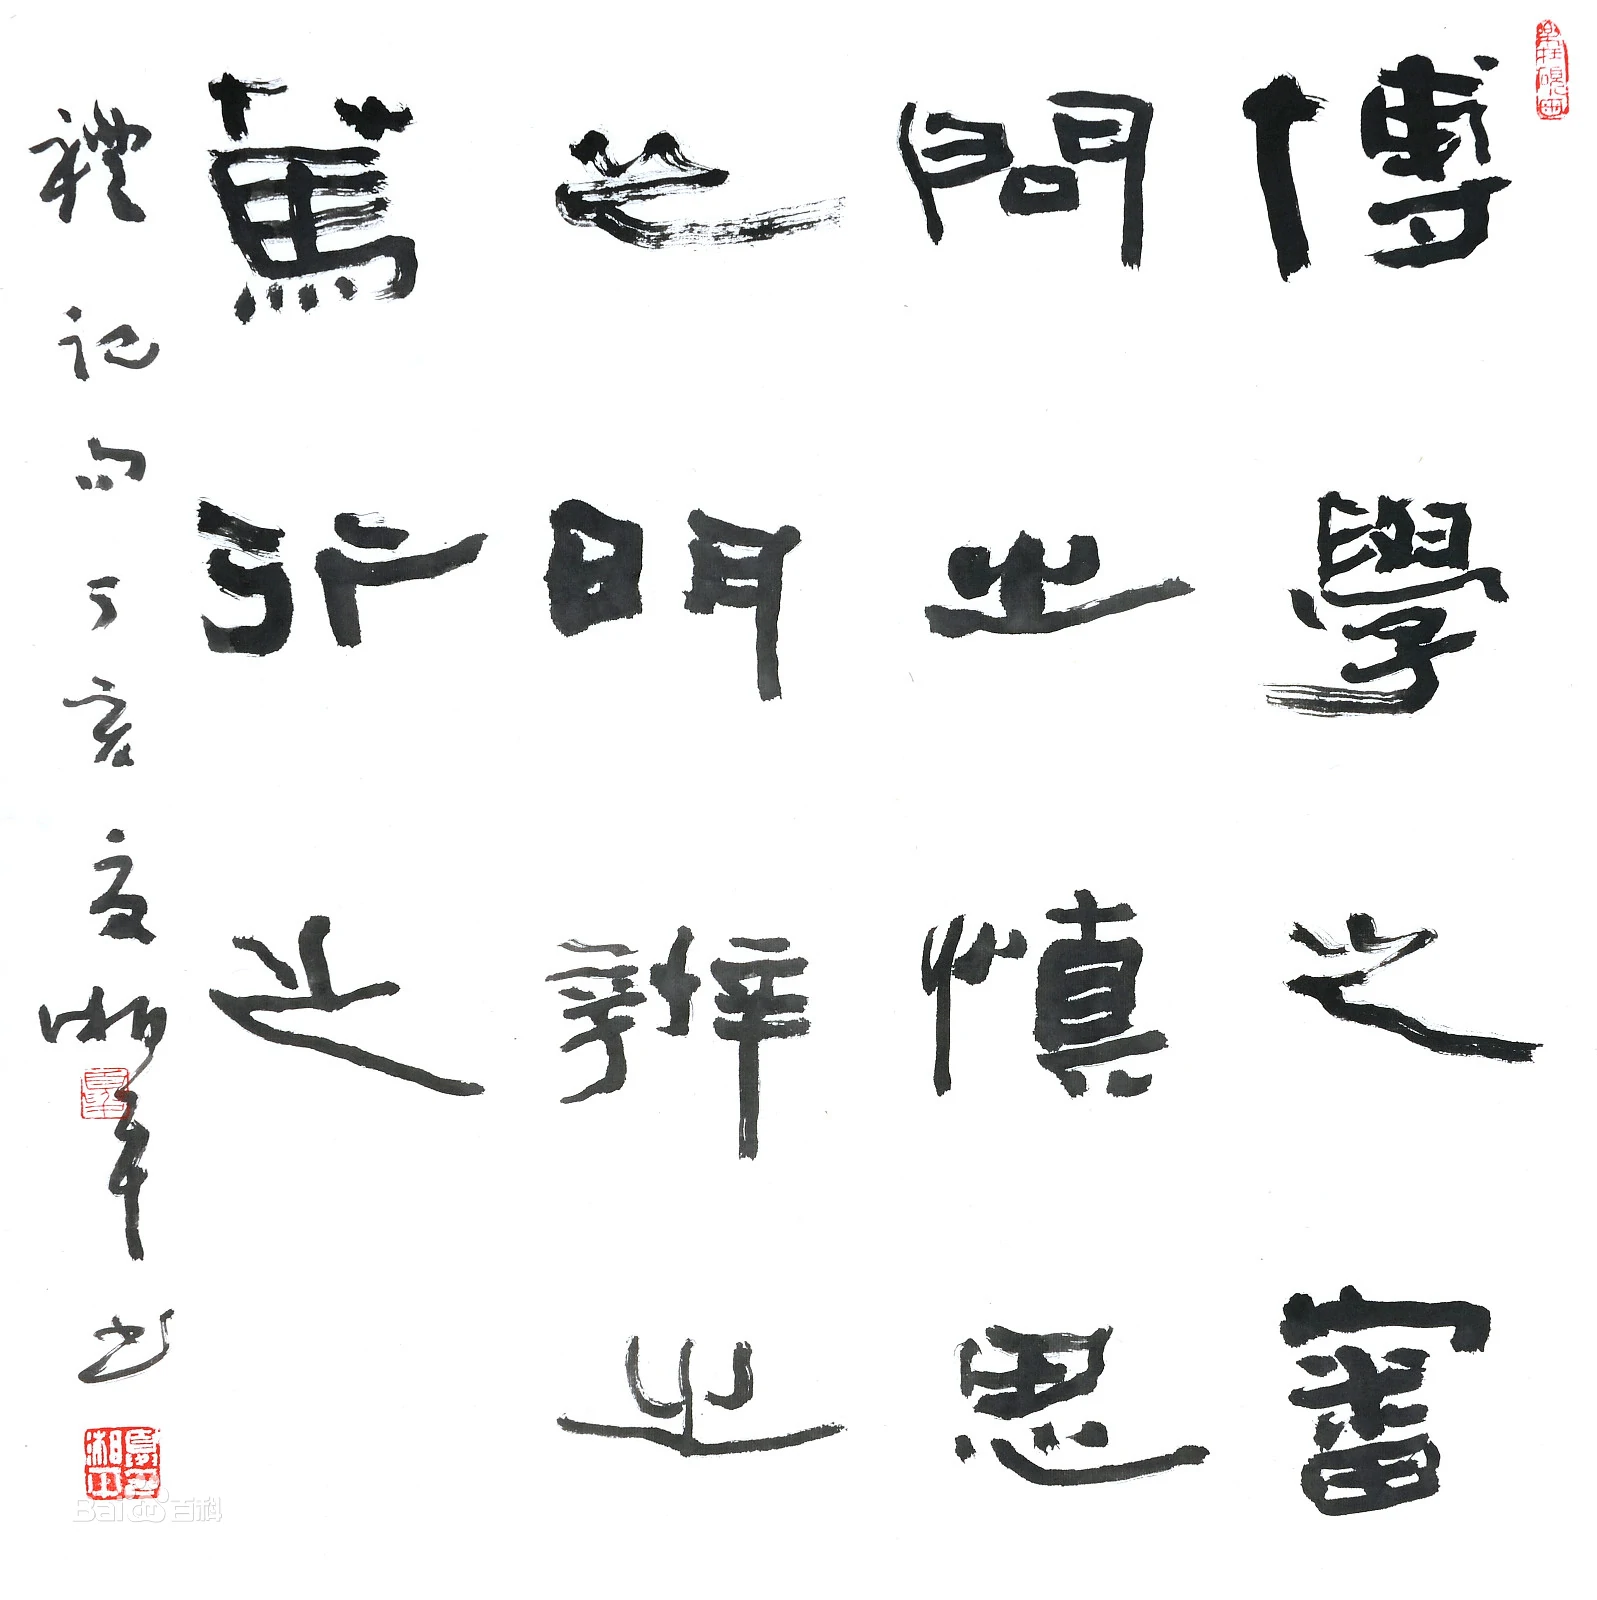 博學之審
問之慎思
之明辨之
篤行之
禮記句丁亥夏湘平书
Bai百科